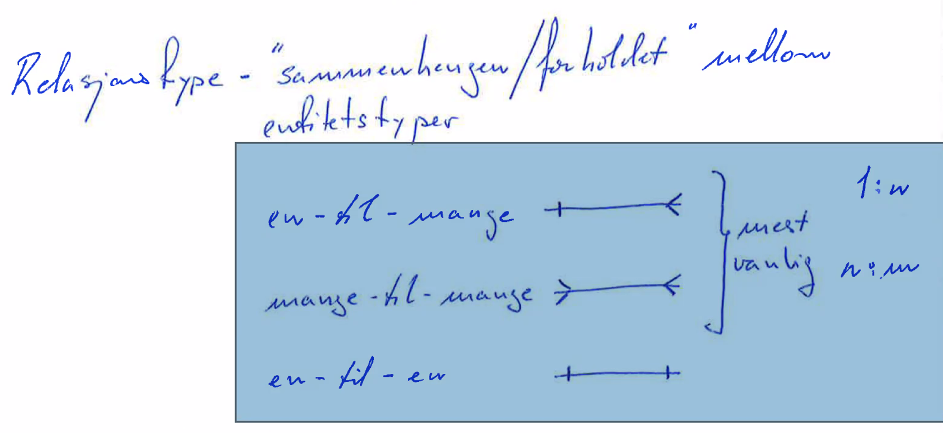 Relasjonstype - "sammenhengen/forholdet" mellom
entitetstyper
en-til-mange
mange-til-mange
en-til-en
mest
vanlig
1:n
n:m